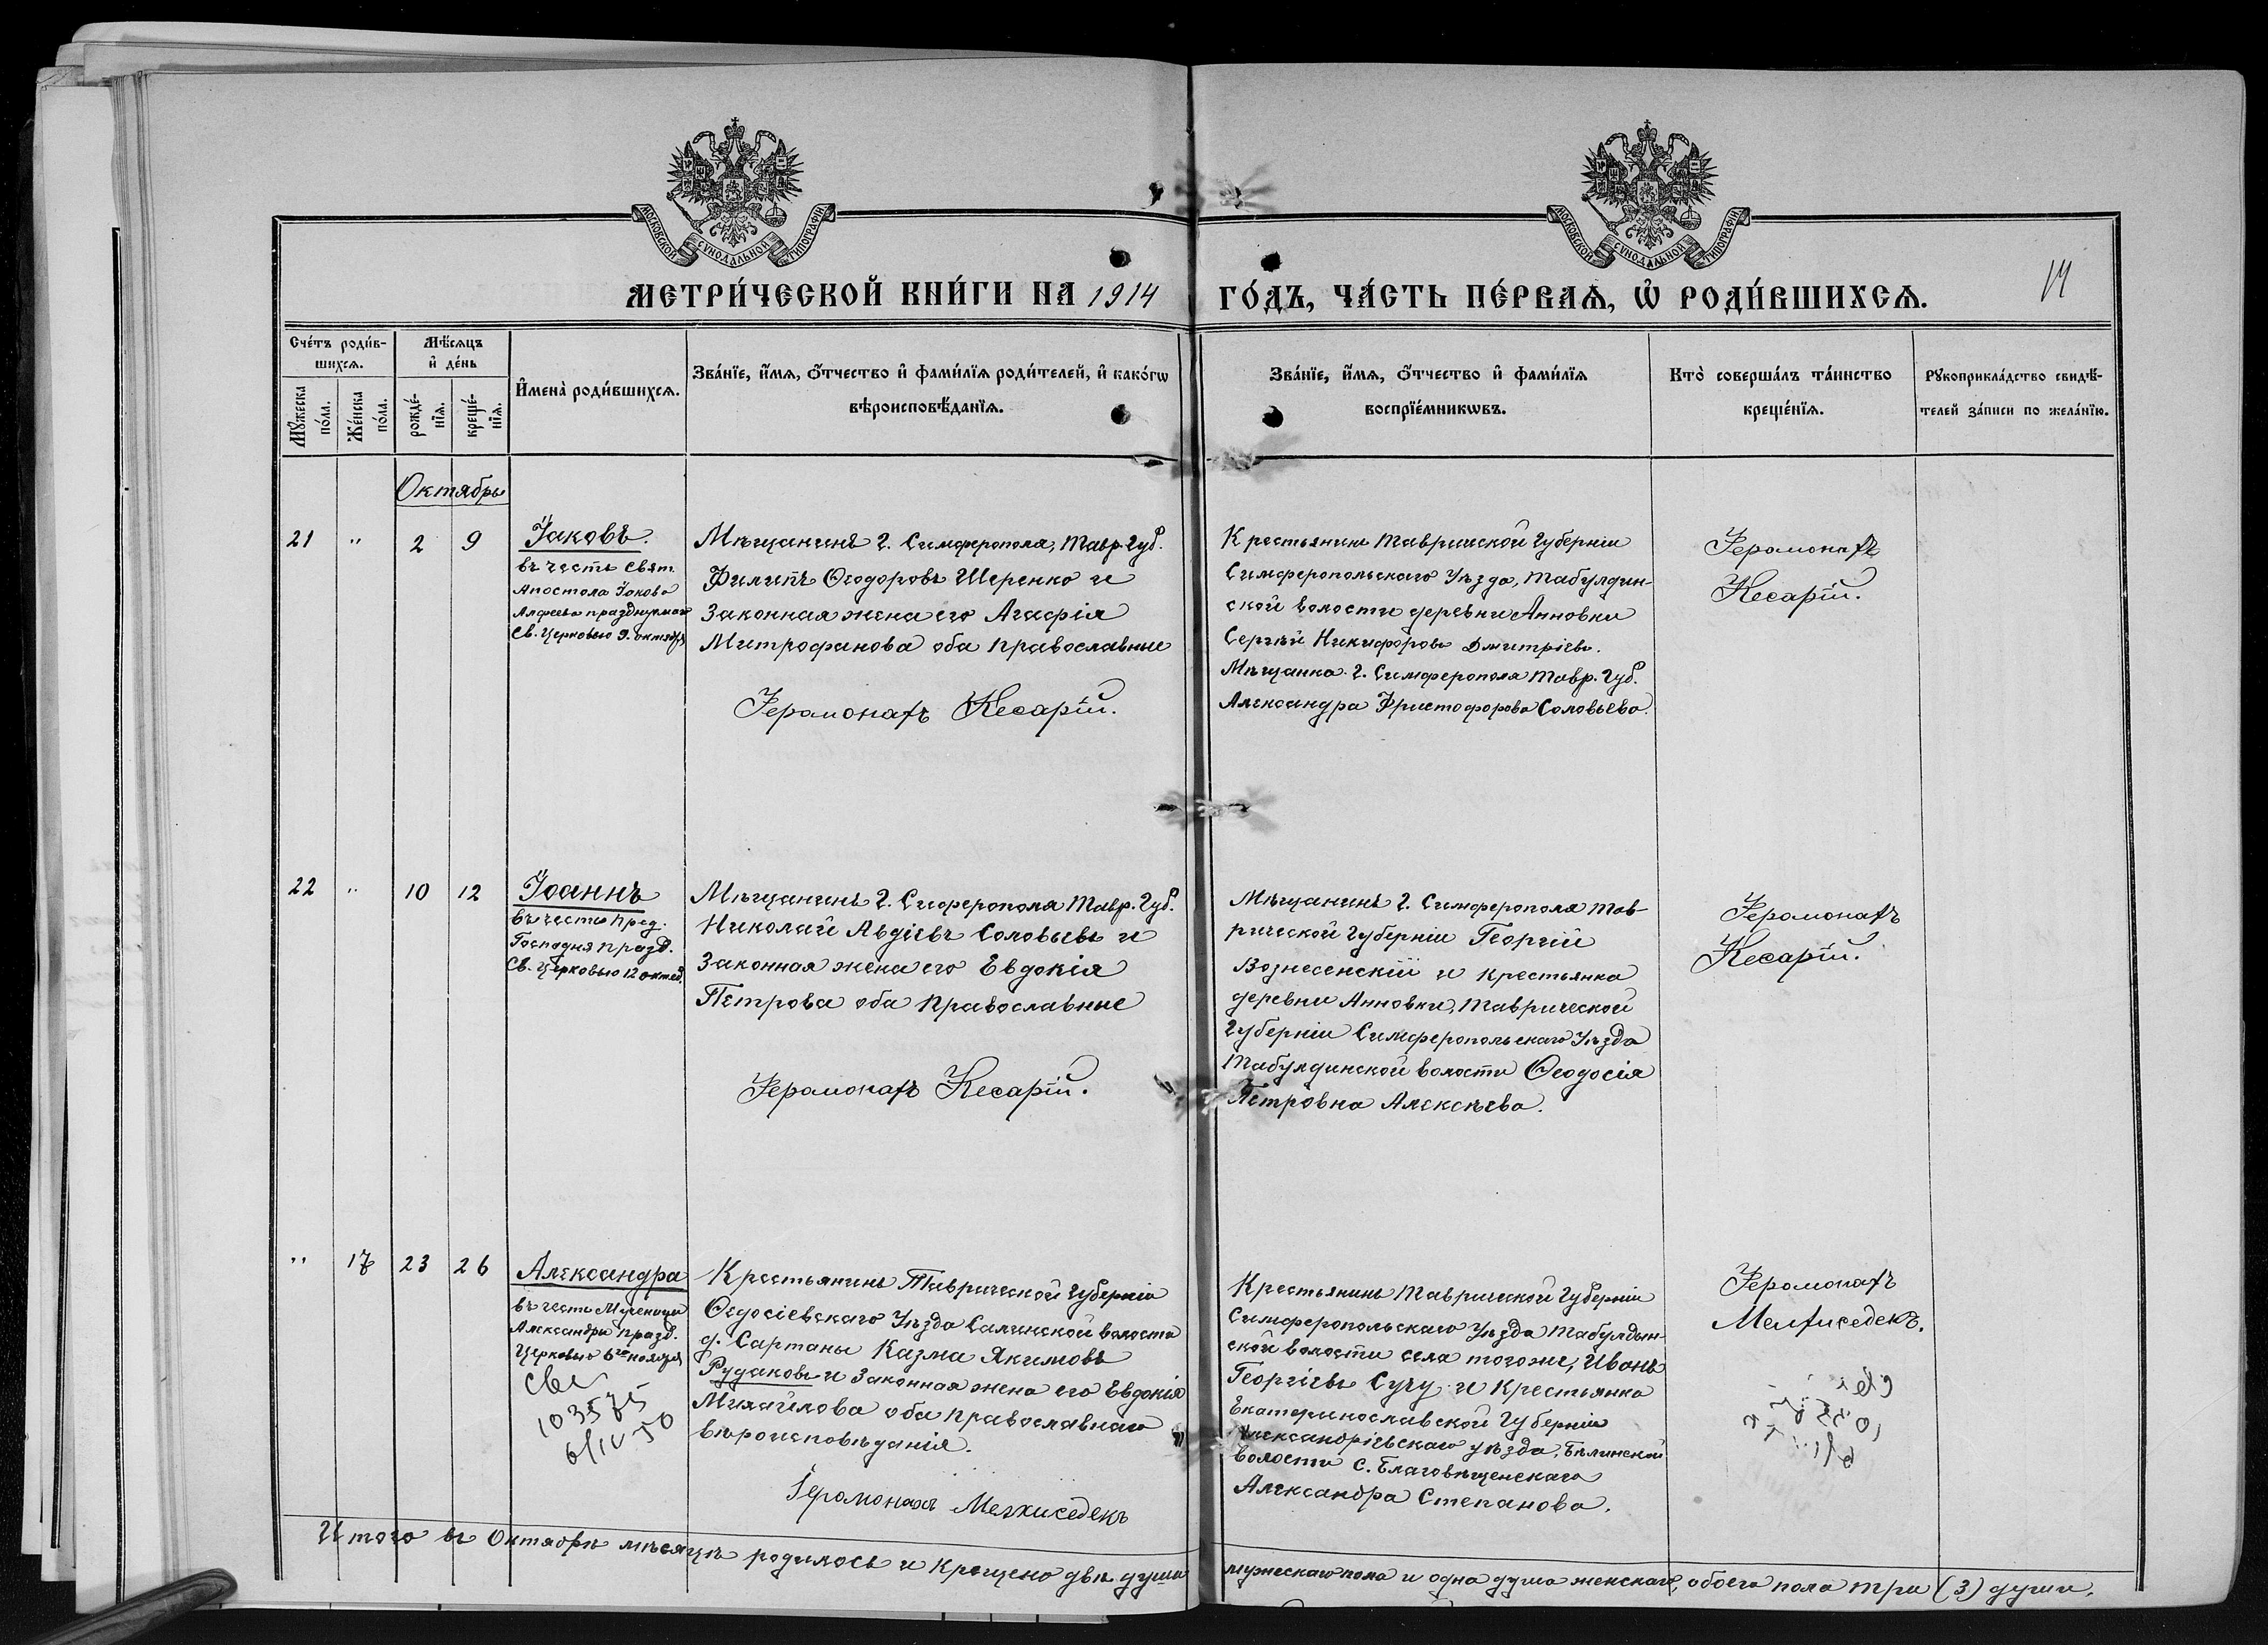 МОСКОВСКОЙ СѴНОДАЛЬНОЙ ТИПОГРАФІИ
МОСКОВСКОЙ СѴНОДАЛЬНОЙ ТИПОГРАФІИ
МЕТРИ́ЧЕСКОЙ КНИ́ГИ НА 1914 ГО́ДЪ, ЧА́СТЬ ПЕ́РВАѦ, Ѡ҆ РОДИ́ВШИХСѦ.
Сче́тъ роди́в-
шихсѧ.
Мꙋ́жеска по́ла.
Же́нска по́ла.
Мѣ́сѧцъ
и҆ де́нь
рожде́-
нїѧ.
креще́-
нїѧ.
И҆мена̀ роди́вшихсѧ.
Зва́нїе, и҆́мѧ, ѻ҆́тчество и҆ фами́лїѧ роди́телей, и҆ како́гѡ
вѣроисповѣ́данїѧ.
Зва́нїе, и҆́мѧ, ѻ҆́тчество и҆ фами́лїѧ
воспрїе́мникѡвъ.
Кто̀ соверша́лъ та́инство
креще́нїѧ.
Рꙋкоприкла́дство свидѣ́-
телей за́писи по жела́нїю.
Октябрь
21 " 2 9
Іаковъ.
въ честь свят.
Апостола Іакова
Алфеева празднуемаго
Св. Церковью 9. октября
Мѣщанинъ г. Симферополя, Тавр. Губ.
Филипъ Ѳеодоровъ Шеренко и
Законная жена его Агафія
Митрофанова оба православные
Іеромонахъ Кесарій.
Крестьянинъ Таврической Губерніи
Симферопольскаго Уѣзда, Табулдин-
ской волости деревни Анновки
Сергѣй Никифоровъ Дмитріевъ.
Мѣщанка г. Симферополя Тавр. Губ.
Александра Христофорова Соловьева.
Іеромонахъ
Кесарій.
22 " 10 12
Іоаннъ
въ честь Пред.
Господня празд.
Св. Церковью 12 октяб.
Мѣщанинъ г. Симферополя Тавр. Губ.
Николай Авдіевъ Соловьевъ и
Законная жена его Евдокія
Петрова оба православные
Іеромонахъ Кесарій.
Мѣщанинъ г. Симферополя Тав-
рической Губерніи Георгій
Вознесенскій и крестьянка
деревни Анновки, Таврической
Губерніи Симферопольскаго Уѣзда
Табулдинской волости Ѳеодосія
Петровна Алексѣева.
Іеромонахъ
Кесарій.
" 17 23 26
Александра
въ честь Мученицы
Александры празд.
Церковью 6го ноября
Крестьянинъ Таврической Губерніи
Ѳеодосіевскаго Уѣзда Салынской волости
д. Сартаны Казма Якимовъ
Рудаковъ и Законная жена его Евдокія
Михайлова оба православнаго
вѣроисповѣданія.
Іеромонахъ Мелхиседекъ
Св.
103575
6/IV-50
Крестьянинъ Таврической Губерніи
Симферопольскаго Уѣзда Табулдын-
ской волости села тогоже, Иванъ
Георгіевъ Сучу и Крестьянка
Екатеринославской Губерніи
Александріевскаго уѣзда,
волости с. Благовѣщенскаго
Александра Степанова.
Іеромонахъ
Мелхиседекъ.
Итого въ Октябрѣ мѣсяцѣ родилось и крещено двѣ души мужескаго пола и одна душа женскаго, обоего пола три (3) души.